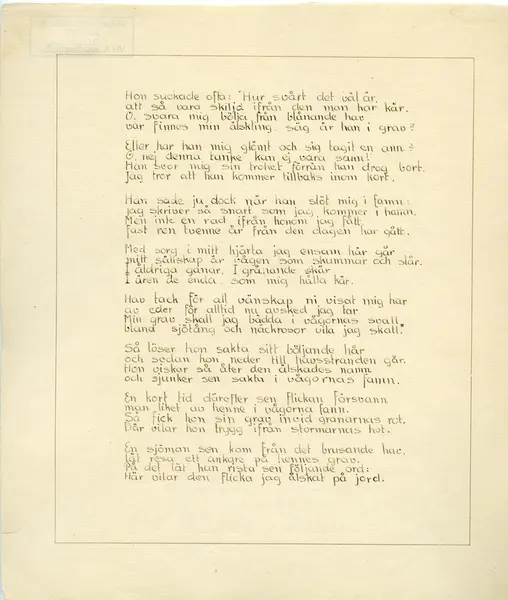 Hon suckade ofta: "Hur svårt det väl är,
att så vara skiljd ifrån den man har kär.
O, svara mig bölja från blånande hav
var finnes min älskling, säg är han i grav?
Eller har han mig glömt och sig tagit en ann?
O, nej denna tanke kan ej vara sann!
Han svor mig sin trohet förrän han drog bort.
Jag tror att han kommer tillbaks inom kort.
Han sade ju dock när han slöt mig i famn:
jag skriver så snart som jag kommer i hamn.
Men inte en rad ifrån honom jag fått
fast ren tvenne år från den dagen har gått.
Med sorg i mitt hjärta jag ensam här går
mitt sällskap är vågen som skummar och slår.
I åldriga granar, I grånande skär
I ären de enda, som mig hålla kär.
Hav tack för all vänskap ni visat mig har
av eder för alltid nu avsked jag tar.
Min grav skall jag bädda i vågornas svall,
bland sjötång och näckrosor vila jag skall."
Så löser hon sakta sitt böljande hår
och sedan hon neder till havsstranden går.
Hon viskar så åter den älskades namn
och sjunker sen sakta i vågornas famn.
En kort tid därefter sen flickan försvann
man liket av henne i vågorna fann.
Så fick hon sin grav invid granarnas rot.
Där vilar hon trygg ifrån stormarnas hot.
En sjöman sen kom från det brusande hav,
lät resa ett ankare på hennes grav.
På det lät han rista sen följande ord:
Här vilar den flicka jag älskat på jord.